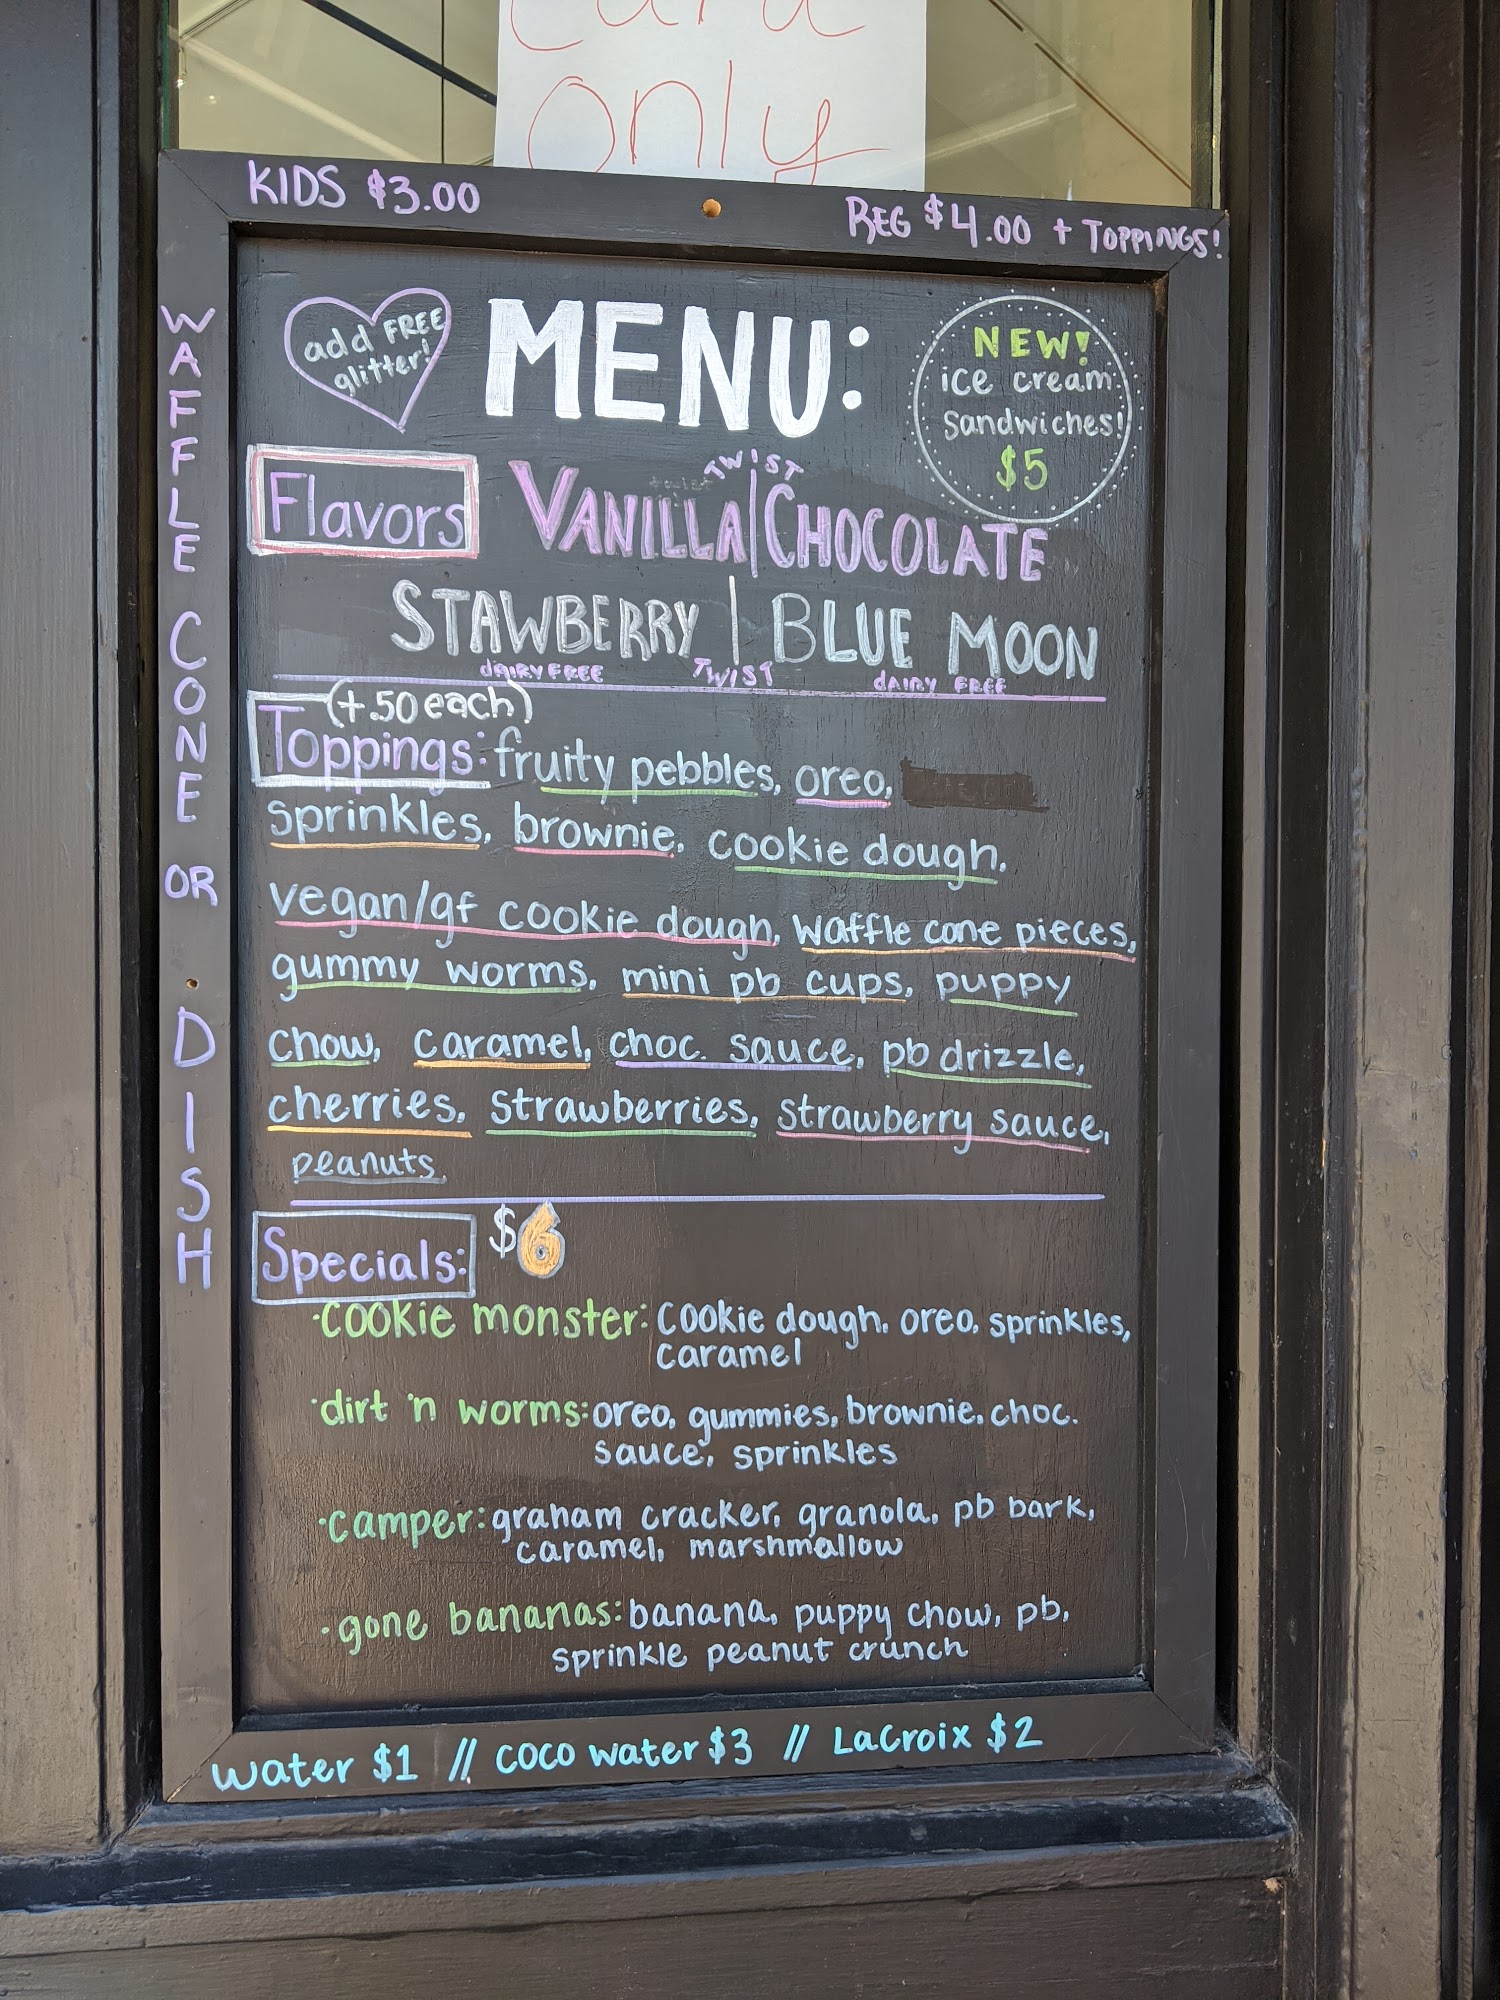 card
only
KIDS $3.00
REG $4.00 + TOPPINGS!
WAFFLE CONE OR DISH
add FREE
glitter!
MENU:
NEW!
ice cream
sandwiches!
$5
Flavors
TWIST
VANILLA | CHOCOLATE
STAWBERRY | BLUE MOON
DAIRY FREE TWIST DAIRY FREE
(+.50 each)
Toppings: fruity pebbles, oreo,
sprinkles, brownie, cookie dough,
vegan/gf cookie dough, waffle cone pieces,
gummy worms, mini pb cups, puppy
chow, caramel, choc. sauce, pb drizzle,
cherries, strawberries, strawberry sauce,
peanuts,
Specials: $6
·cookie monster: cookie dough, oreo, sprinkles,
caramel
·dirt 'n worms: oreo, gummies, brownie, choc.
sauce, sprinkles
·camper: graham cracker, granola, pb bark,
caramel, marshmallow
·gone bananas: banana, puppy chow, pb,
sprinkle peanut crunch
water $1 // coco water $3 // LaCroix $2